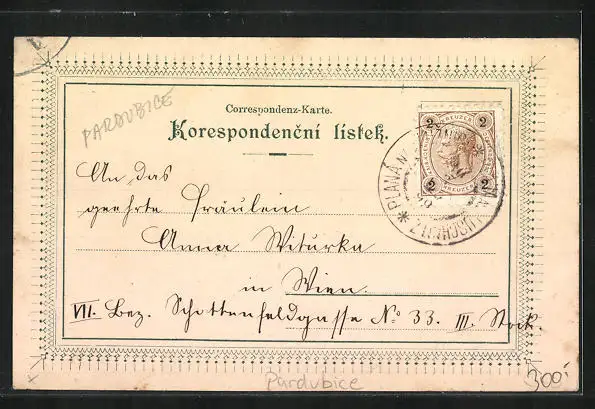 PARDUBICE
Correspondenz-Karte.
Korespondenční lístek.
2 KREUZER 2
2 KREUZER 2
PLANÁ N.
An das
geehrte Fräulein
Anna Witurka
in Wien.
VII. Bez. Schottenfeldgasse No 33. III. Stock.
Pardubice
300.